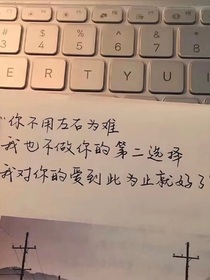 # $ % ^ & *
3 4 5 6 7 8
E R T Y U I
“你不用左右为难
我也不做你的第二选择
我对你的爱到此为止就好了”